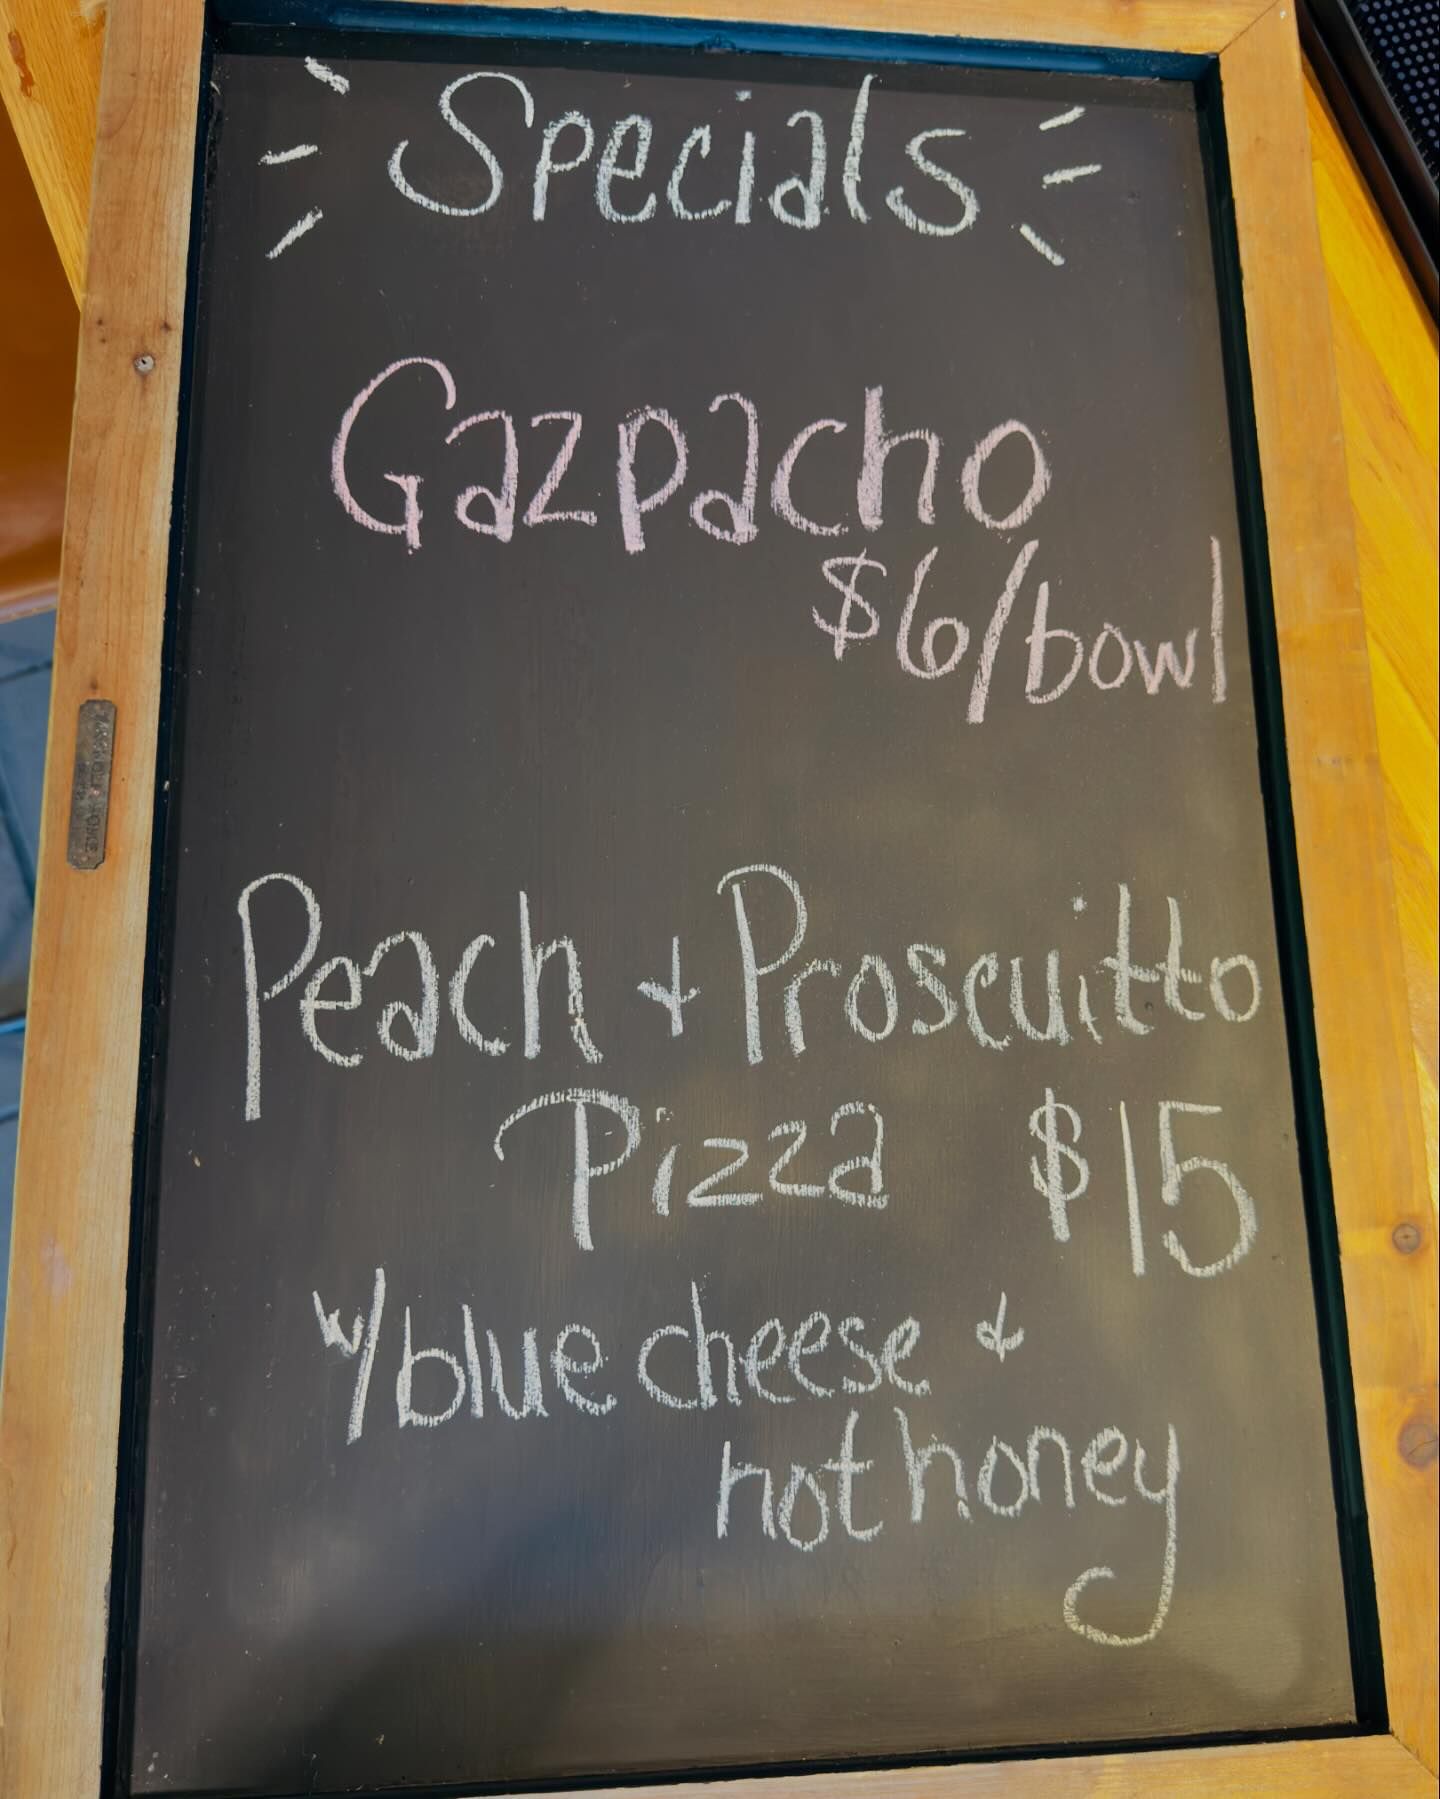 Specials
Gazpacho
$6/bowl
Peach & Prosciutto
Pizza $15
w/blue cheese &
hot honey